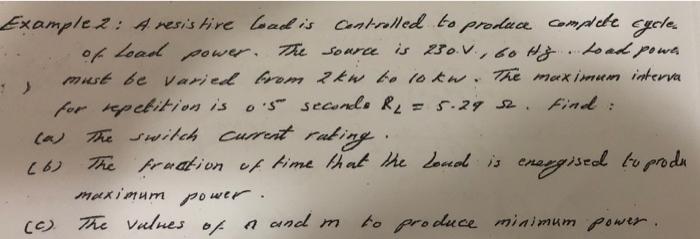 Example 2: A resistive load is controlled to produce complete cycle
of load power. The source is 230.V, 60 Hz. Load powe
must be varied from 2kw to 10 kw. The maximum interva
for repetition is 0.5 seconds RL = 5.29 Ω. Find :
(a) The switch current rating.
(b) The fraction of time that the load is energised to produ
maximum power.
(c) The values of n and m to produce minimum power.